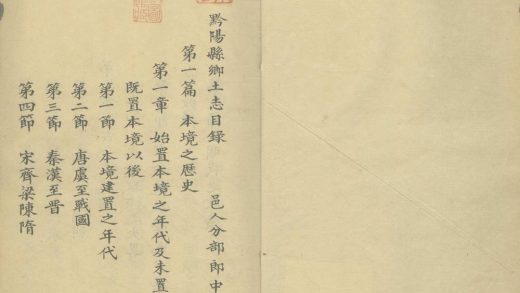 黔陽縣鄉土志目錄
邑人分部郎中
第一篇 本境之歷史
第一章 始置本境之年代及未置
既置本境以後
第一節 本境建置之年代
第二節 唐虞至戰國
第三節 秦漢至晉
第四節 宋齊梁陳隋